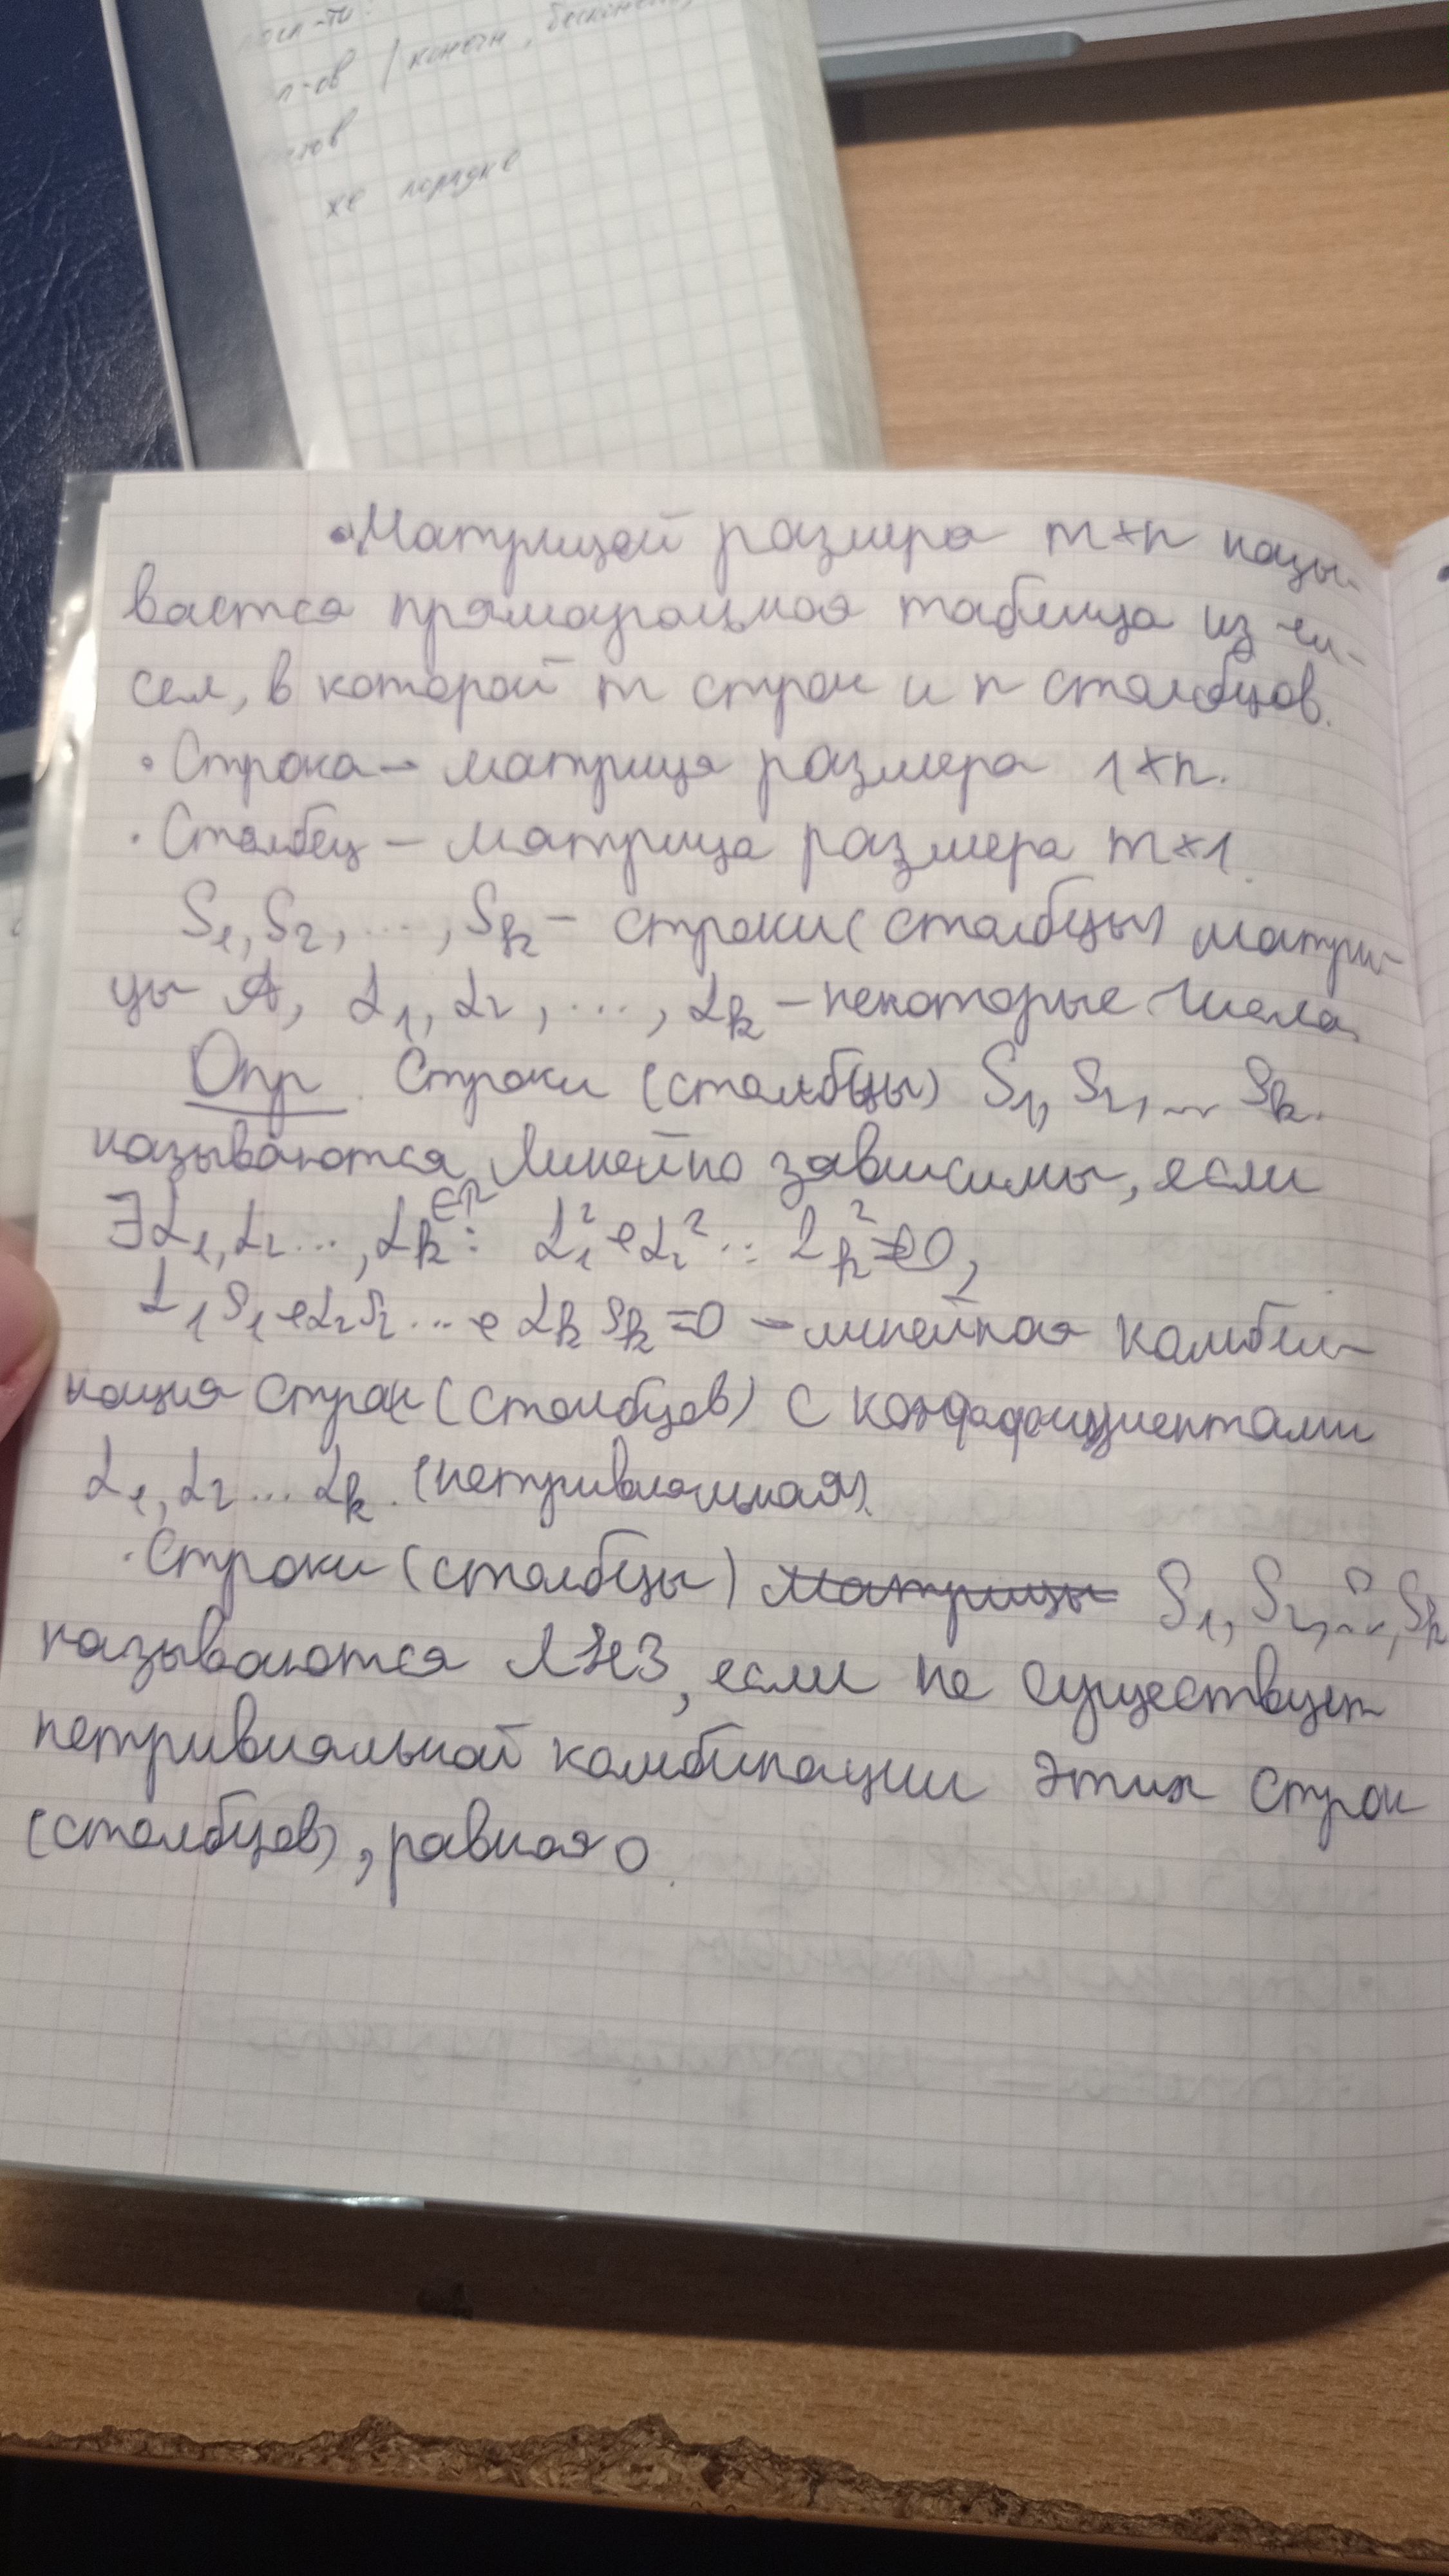 п-ов (конечн, бесконечн
же порядке
• Матрицей размера m×n назы-
вается прямоугольная таблица из чи-
сел, в которой m строк и n столбцов.
• Строка – матрица размера 1×n.
• Столбец – матрица размера m×1.
S₁, S₂, ..., Sₖ – строки (столбцы) матри-
цы A, α₁, α₂, ..., αₖ – некоторые числа.
Опр. Строки (столбцы) S₁, S₂, ... Sₖ.
называются линейно зависимы, если
∃α₁, α₂ ..., αₖ ∈ℝ: α₁² + α₂² ... αₖ² ≠ 0,
α₁S₁ + α₂S₂ ... + αₖSₖ = 0 – линейная комби-
нация строк (столбцов) с коэффициентами
α₁, α₂ ... αₖ. (нетривиальная).
• Строки (столбцы) матрицы S₁, S₂, ..., Sₖ
называются ЛНЗ, если не существует
нетривиальной комбинации этих строк
(столбцов), равная 0.